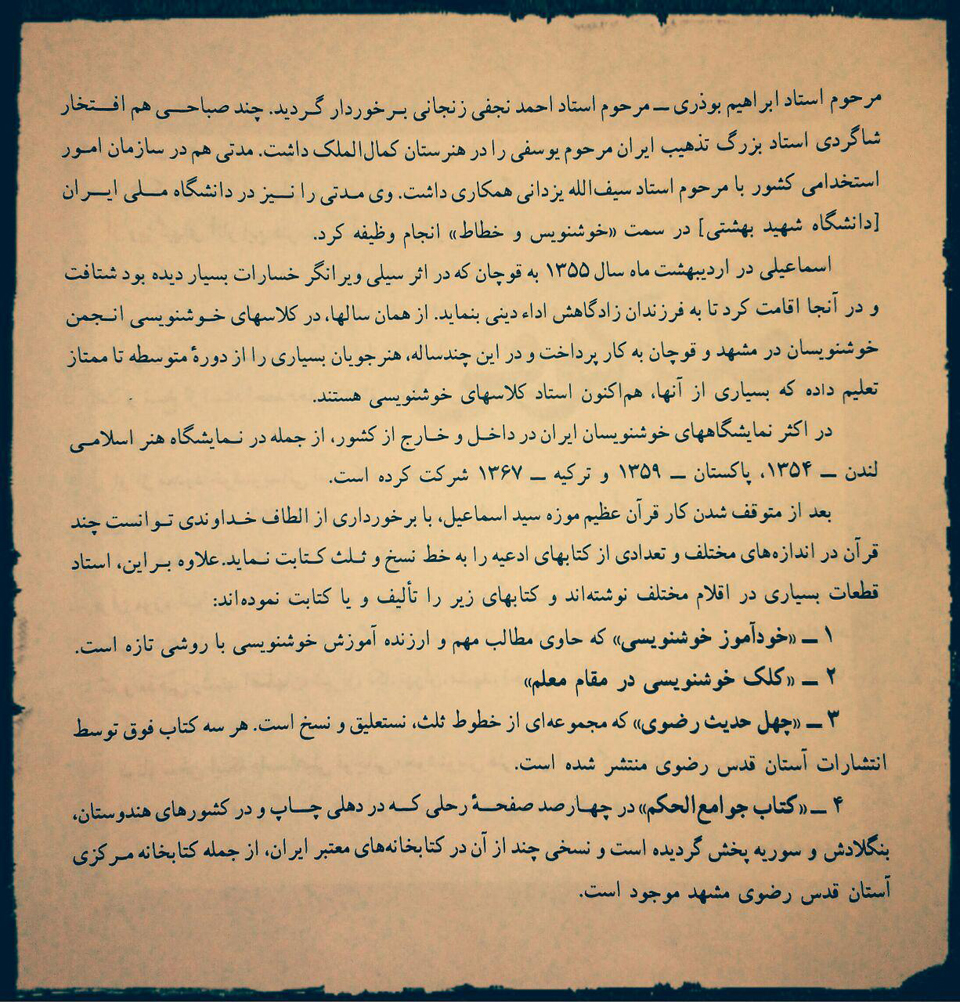 مرحوم استاد ابراهیم بوذری ــ مرحوم استاد احمد نجفی زنجانی برخوردار گردید. چند صباحی هم افتخار
شاگردی استاد بزرگ تذهیب ایران مرحوم یوسفی را در هنرستان کمال‌الملک داشت. مدتی هم در سازمان امور
استخدامی کشور با مرحوم استاد سیف‌الله یزدانی همکاری داشت. وی مدتی را نیز در دانشگاه ملی ایران
[دانشگاه شهید بهشتی] در سمت «خوشنویس و خطاط» انجام وظیفه کرد.
اسماعیلی در اردیبهشت ماه سال ۱۳۵۵ به قوچان که در اثر سیلی ویرانگر خسارات بسیار دیده بود شتافت
و در آنجا اقامت کرد تا به فرزندان زادگاهش اداء دینی بنماید. از همان سالها، در کلاسهای خوشنویسی انجمن
خوشنویسان در مشهد و قوچان به کار پرداخت و در این چندساله، هنرجویان بسیاری را از دورهٔ متوسطه تا ممتاز
تعلیم داده که بسیاری از آنها، هم‌اکنون استاد کلاسهای خوشنویسی هستند.
در اکثر نمایشگاههای خوشنویسان ایران در داخل و خارج از کشور، از جمله در نمایشگاه هنر اسلامی
لندن ــ ۱۳۵۴، پاکستان ــ ۱۳۵۹ و ترکیه ــ ۱۳۶۷ شرکت کرده است.
بعد از متوقف شدن کار قرآن عظیم موزه سید اسماعیل، با برخورداری از الطاف خداوندی توانست چند
قرآن در اندازه‌های مختلف و تعدادی از کتابهای ادعیه را به خط نسخ و ثلث کتابت نماید. علاوه براین، استاد
قطعات بسیاری در اقلام مختلف نوشته‌اند و کتابهای زیر را تألیف و یا کتابت نموده‌اند:
۱ ــ «خودآموز خوشنویسی» که حاوی مطالب مهم و ارزنده آموزش خوشنویسی با روشی تازه است.
۲ ــ «کلک خوشنویسی در مقام معلم»
۳ ــ «چهل حدیث رضوی» که مجموعه‌ای از خطوط ثلث، نستعلیق و نسخ است. هر سه کتاب فوق توسط
انتشارات آستان قدس رضوی منتشر شده است.
۴ ــ «کتاب جوامع‌الحکم» در چهارصد صفحهٔ رحلی که در دهلی چاپ و در کشورهای هندوستان،
بنگلادش و سوریه پخش گردیده است و نسخی چند از آن در کتابخانه‌های معتبر ایران، از جمله کتابخانه مرکزی
آستان قدس رضوی مشهد موجود است.